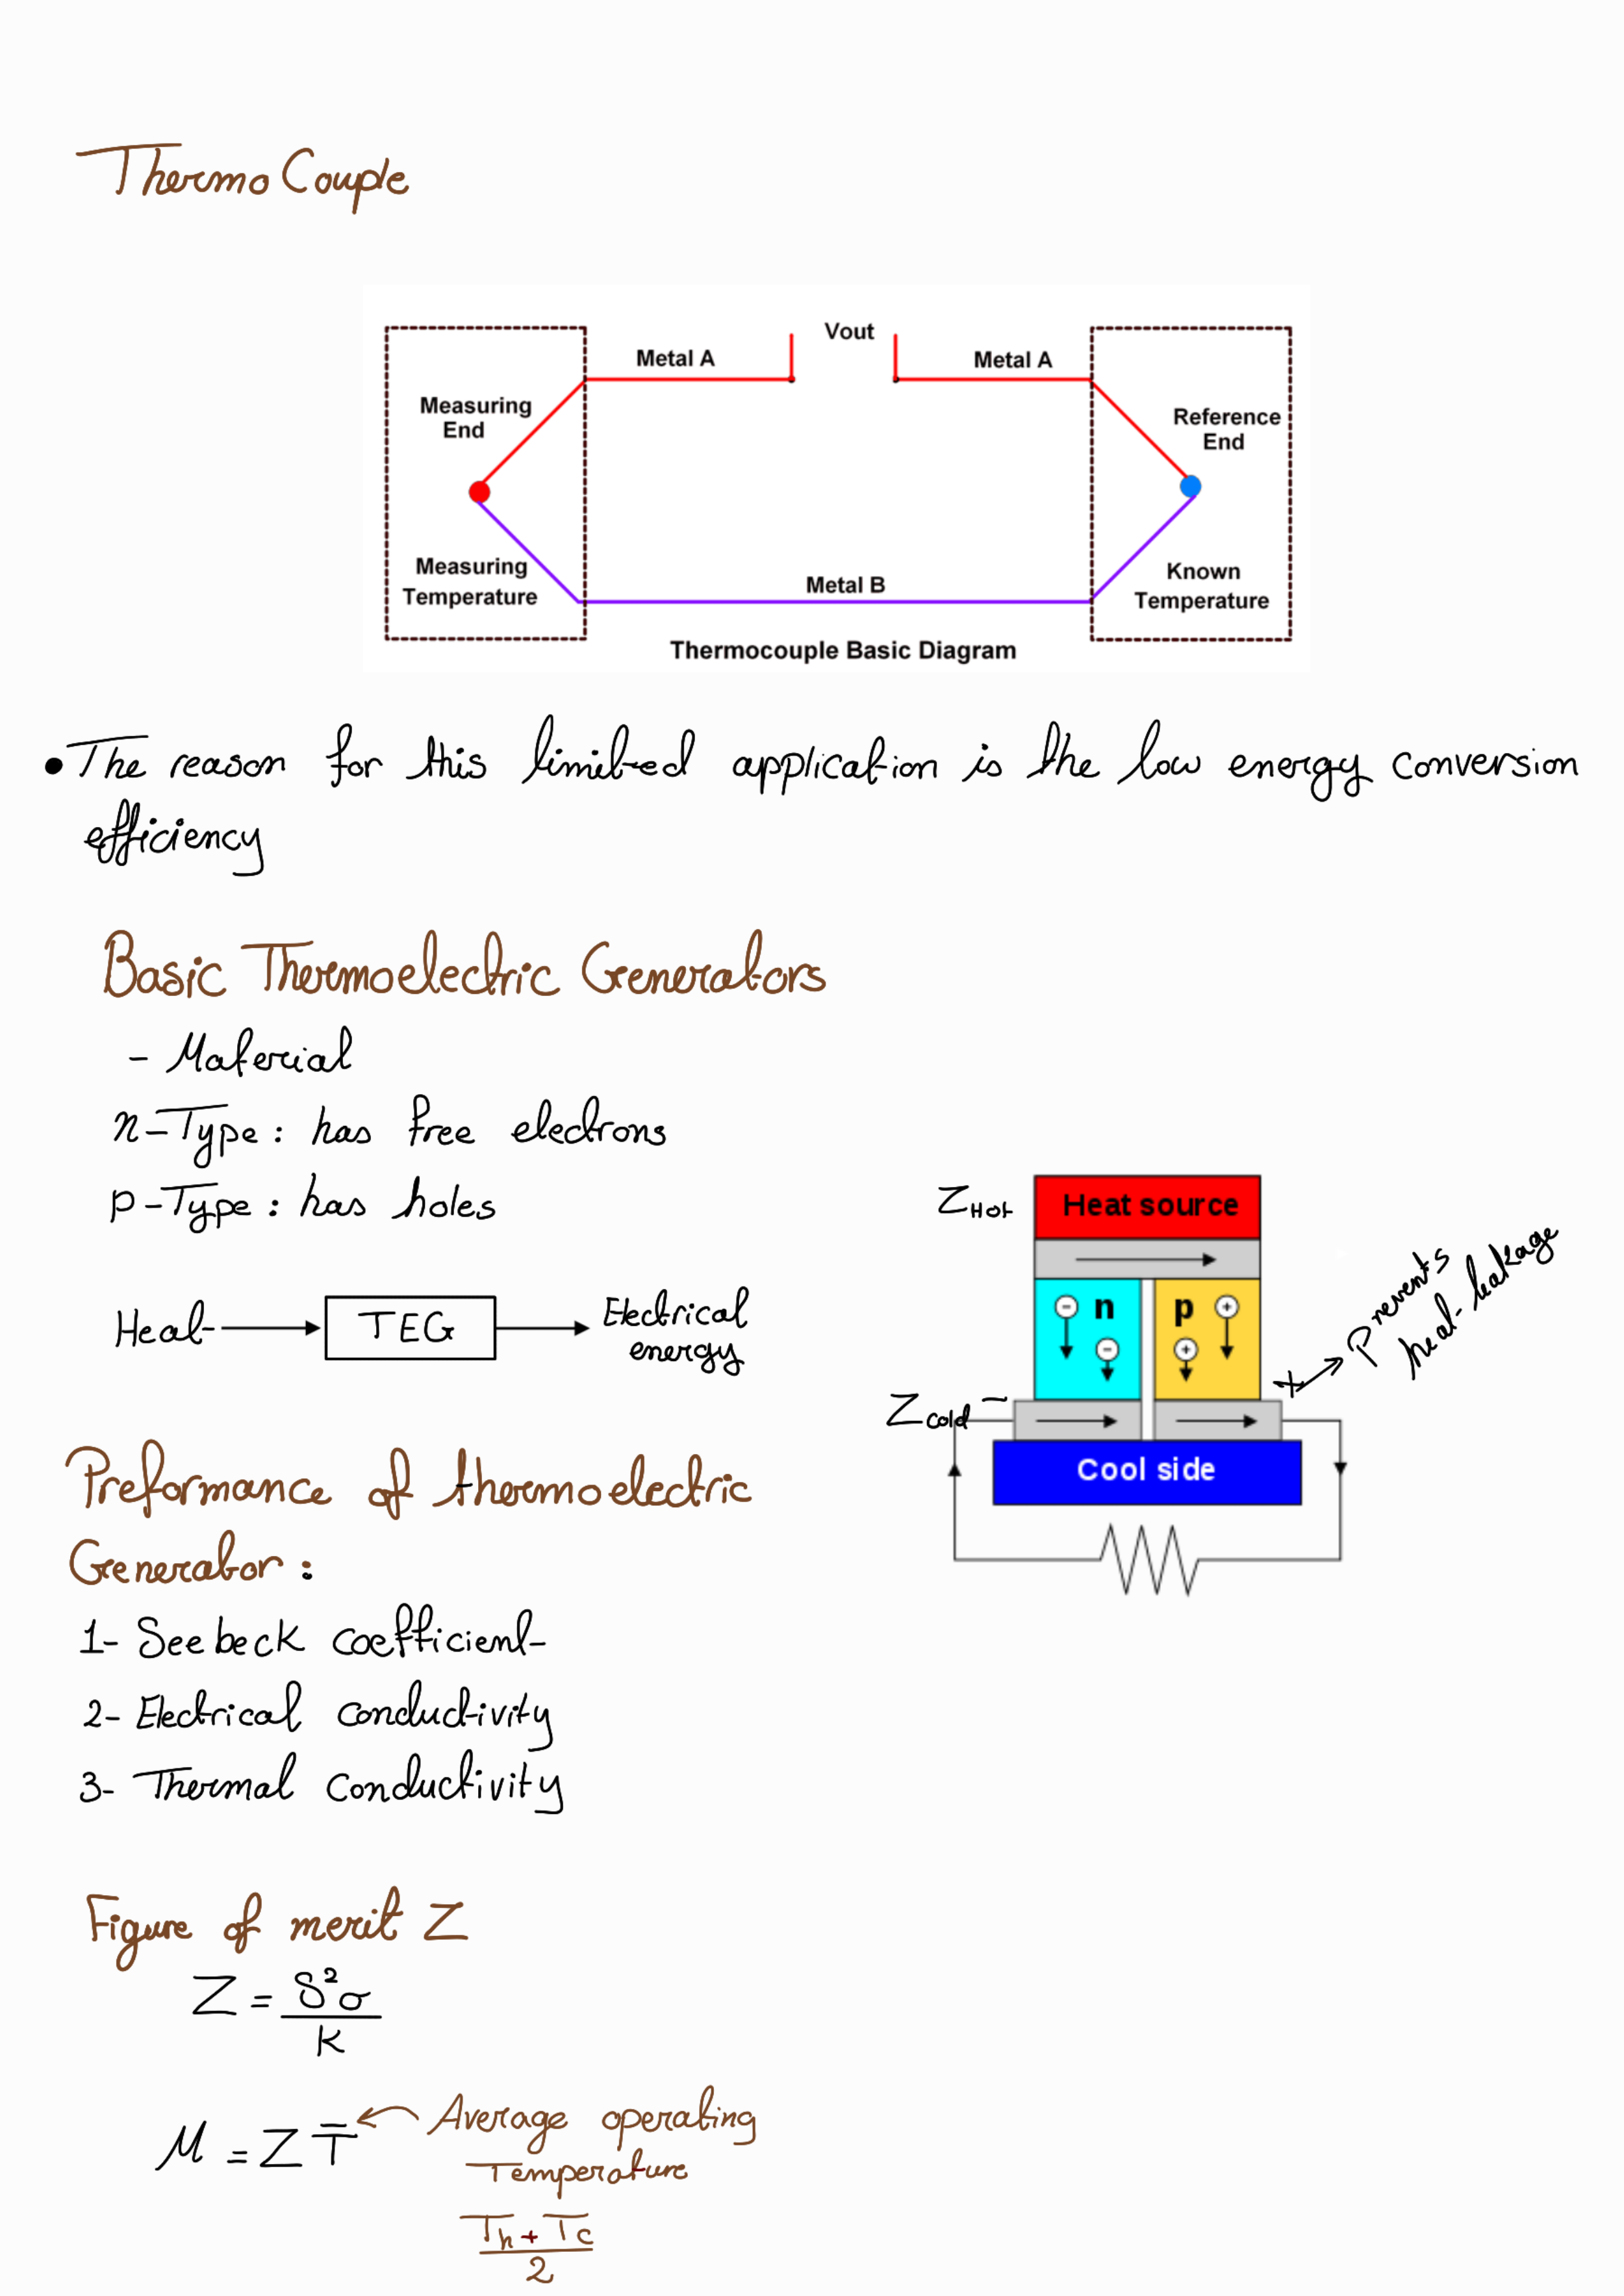 Thermo Couple
Vout
Metal A
Metal A
Measuring
End
Reference
End
Measuring
Temperature
Known
Temperature
Metal B
Thermocouple Basic Diagram
• The reason for this limited application is the low energy conversion
efficiency
Basic Thermoelectric Generators
- Material
n-Type : has free electrons
p-Type : has holes
Heat → TEG → Electrical
energy
Z Hot
Heat source
n p
Prevents
heat leakage
Z cold
Cool side
Preformance of thermoelectric
Generator :
1- Seebeck coefficient
2- Electrical conductivity
3- Thermal conductivity
Figure of merit Z
Z = S²σ
K
M = Z T̅ ← Average operating
Temperature
Th + Tc
2